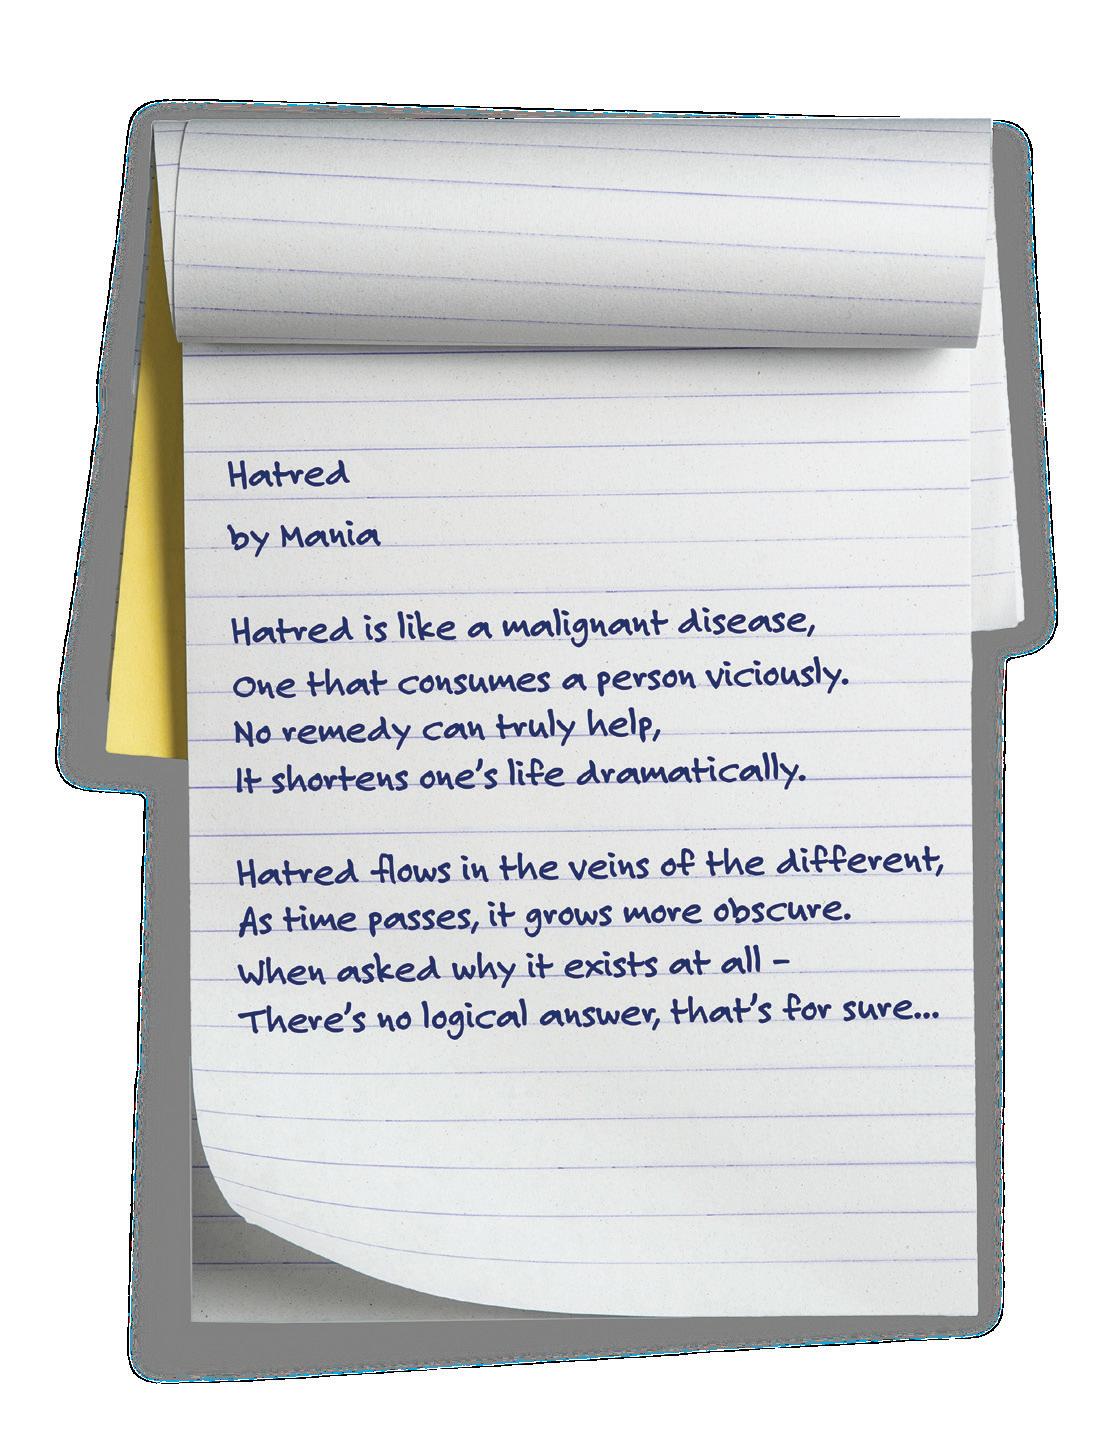 Hatred
by Mania
Hatred is like a malignant disease,
One that consumes a person viciously.
No remedy can truly help,
It shortens one's life dramatically.
Hatred flows in the veins of the different,
As time passes, it grows more obscure.
When asked why it exists at all –
There's no logical answer, that's for sure...